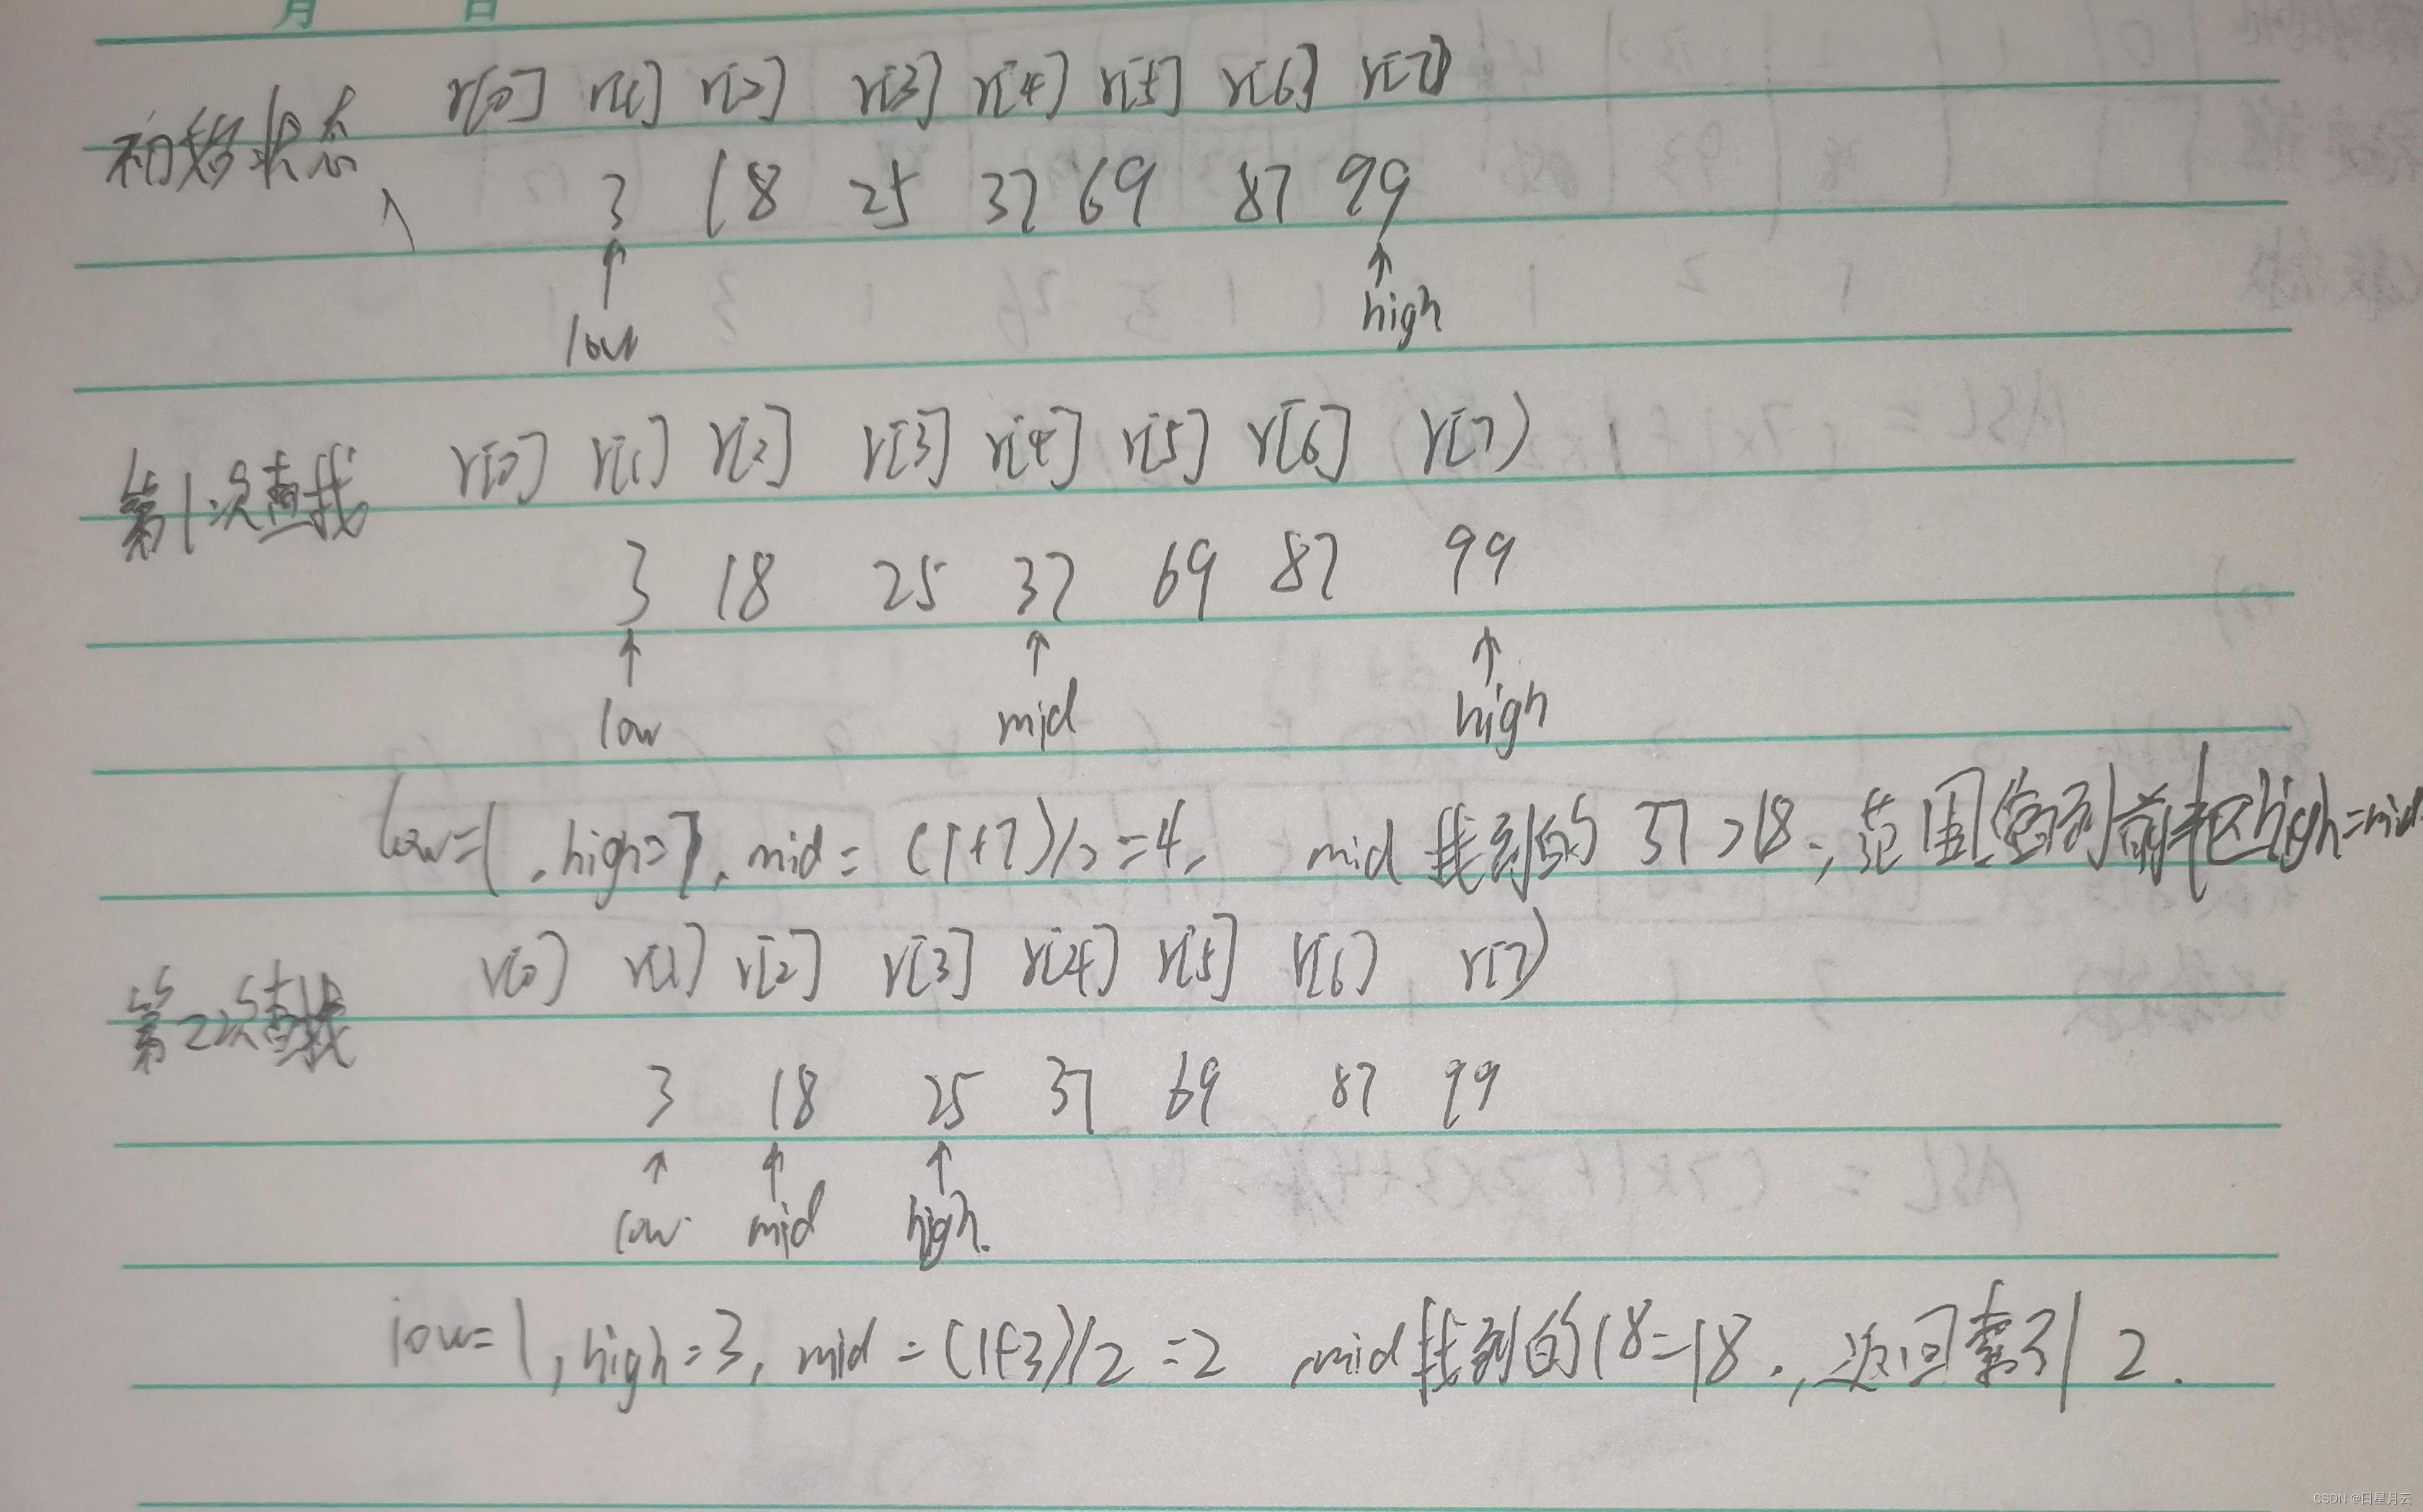 月 日
r[0] r[1] r[2] r[3] r[4] r[5] r[6] r[7]
初始状态
3 18 25 37 69 87 99
low high
r[0] r[1] r[2] r[3] r[4] r[5] r[6] r[7]
第1次查找
3 18 25 37 69 87 99
low mid high
low=1, high=7, mid=(1+7)/2=4, mid找到的37>18, 范围缩到前半区high=mid
r[0] r[1] r[2] r[3] r[4] r[5] r[6] r[7]
第2次查找
3 18 25 37 69 87 99
low mid high.
low=1, high=3, mid=(1+3)/2=2 ,mid找到的18=18., 返回索引2.
CSDN @日星月云